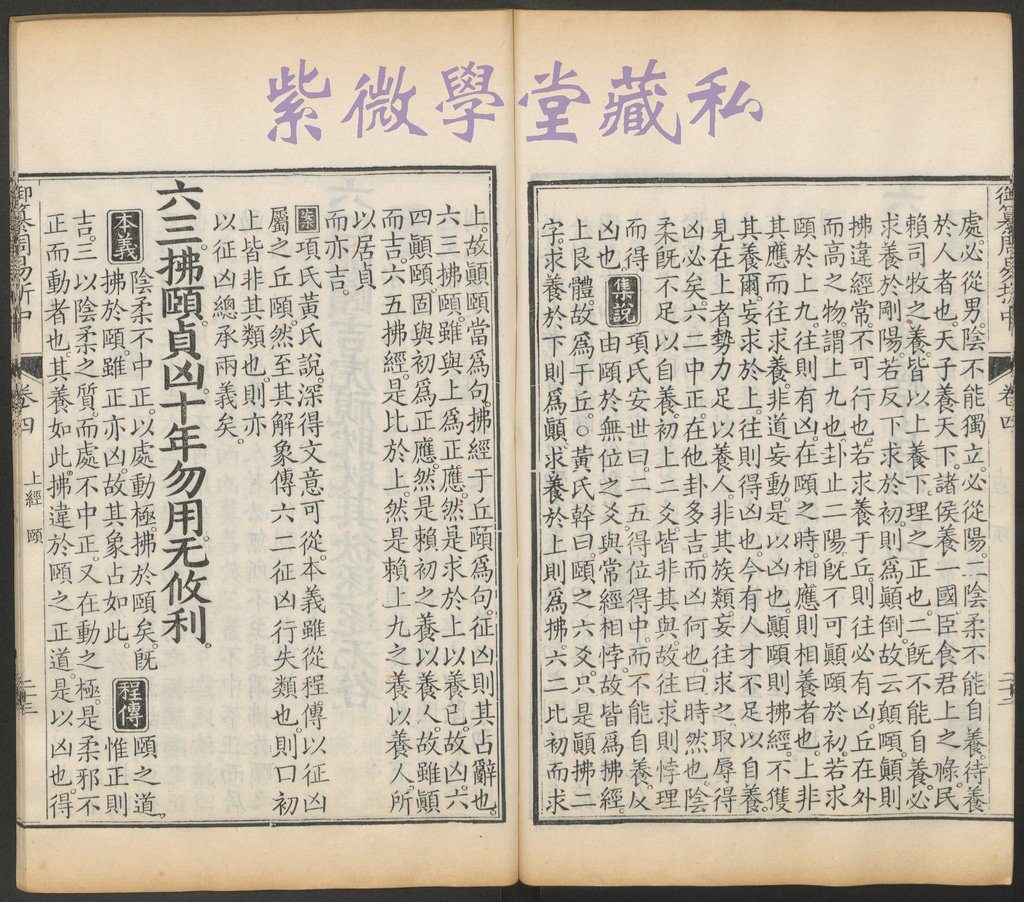 紫微學堂藏私
處必從男陰不能獨立必從陽二陰柔不能自養待養
於人者也天子養天下諸侯養一國臣食君上之祿民
賴司牧之養皆以上養下理之正也二旣不能自養必
求養於剛陽若反下求於初則爲顚倒故云顚頤顚則
拂違經常不可行也若求養于丘則往必有凶丘在外
而高之物謂上九也卦止二陽旣不可顚頤於初若求
頤於上九往則有凶在頤之時相應則相養者也上非
其應而往求養非道妄動是以凶也顚頤則拂經不獲
其養爾妄求於上往則得凶也今有人才不足以自養
見在上者勢力足以養人非其族類妄往求之取辱得
凶必矣六二中正在他卦多吉而凶何也曰時然也陰
柔旣不足以自養初上二爻皆非其與故往求則悖理
而得 集說 項氏安世曰二五得位得中而不能自養反
凶也 由頤於無位之爻與常經相悖故皆爲拂經
上艮體故爲于丘○黃氏幹曰頤之六爻只是顚拂二
字求養於下則爲顚求養於上則爲拂六二比初而求
上故顚頤當爲句拂經于丘頤爲句征凶則其占辭也
六三拂頤雖與上爲正應然是求於上以養已故凶六
四顚頤固與初爲正應然是賴初之養以養人故雖顚
而吉六五拂經是比於上然是賴上九之養以養人所
以居貞
而亦吉
案 項氏黃氏說深得文意可從本義雖從程傳以征凶
屬之丘頤然至其解象傳六二征凶行失類也則口初
上皆非其類也則亦
以征凶總承兩義矣
六三拂頤貞凶十年勿用无攸利
本義 陰柔不中正以處動極拂於頤矣旣
拂於頤雖正亦凶故其象占如此 程傳 頤之道惟正則
吉三以陰柔之質而處不中正又在動之極是柔邪不
正而動者也其養如此拂違於頤之正道是以凶也得
卷四
上經 頤
二十三